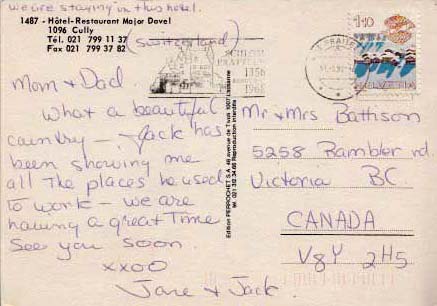 we are staying in this hotel.
1487 - Hôtel-Restaurant Major Davel
1096 Cully
Tél. 021 799 11 37
Fax 021 799 37 82
(Switzerland)
Mom + Dad
What a beautiful
country - Jack has
been showing me
all the places he used
to work - we are
having a great time
See you soon.
xxoo
Jane + Jack
Edition PERROCHET S.A. Lausanne
Reproduction interdite
SCHLOSS
PRATTELN
1356
PRATTELN
110
HELVETIA
Mr + Mrs Battison
5258 Rambler rd.
Victoria BC.
CANADA
V8Y 2H5